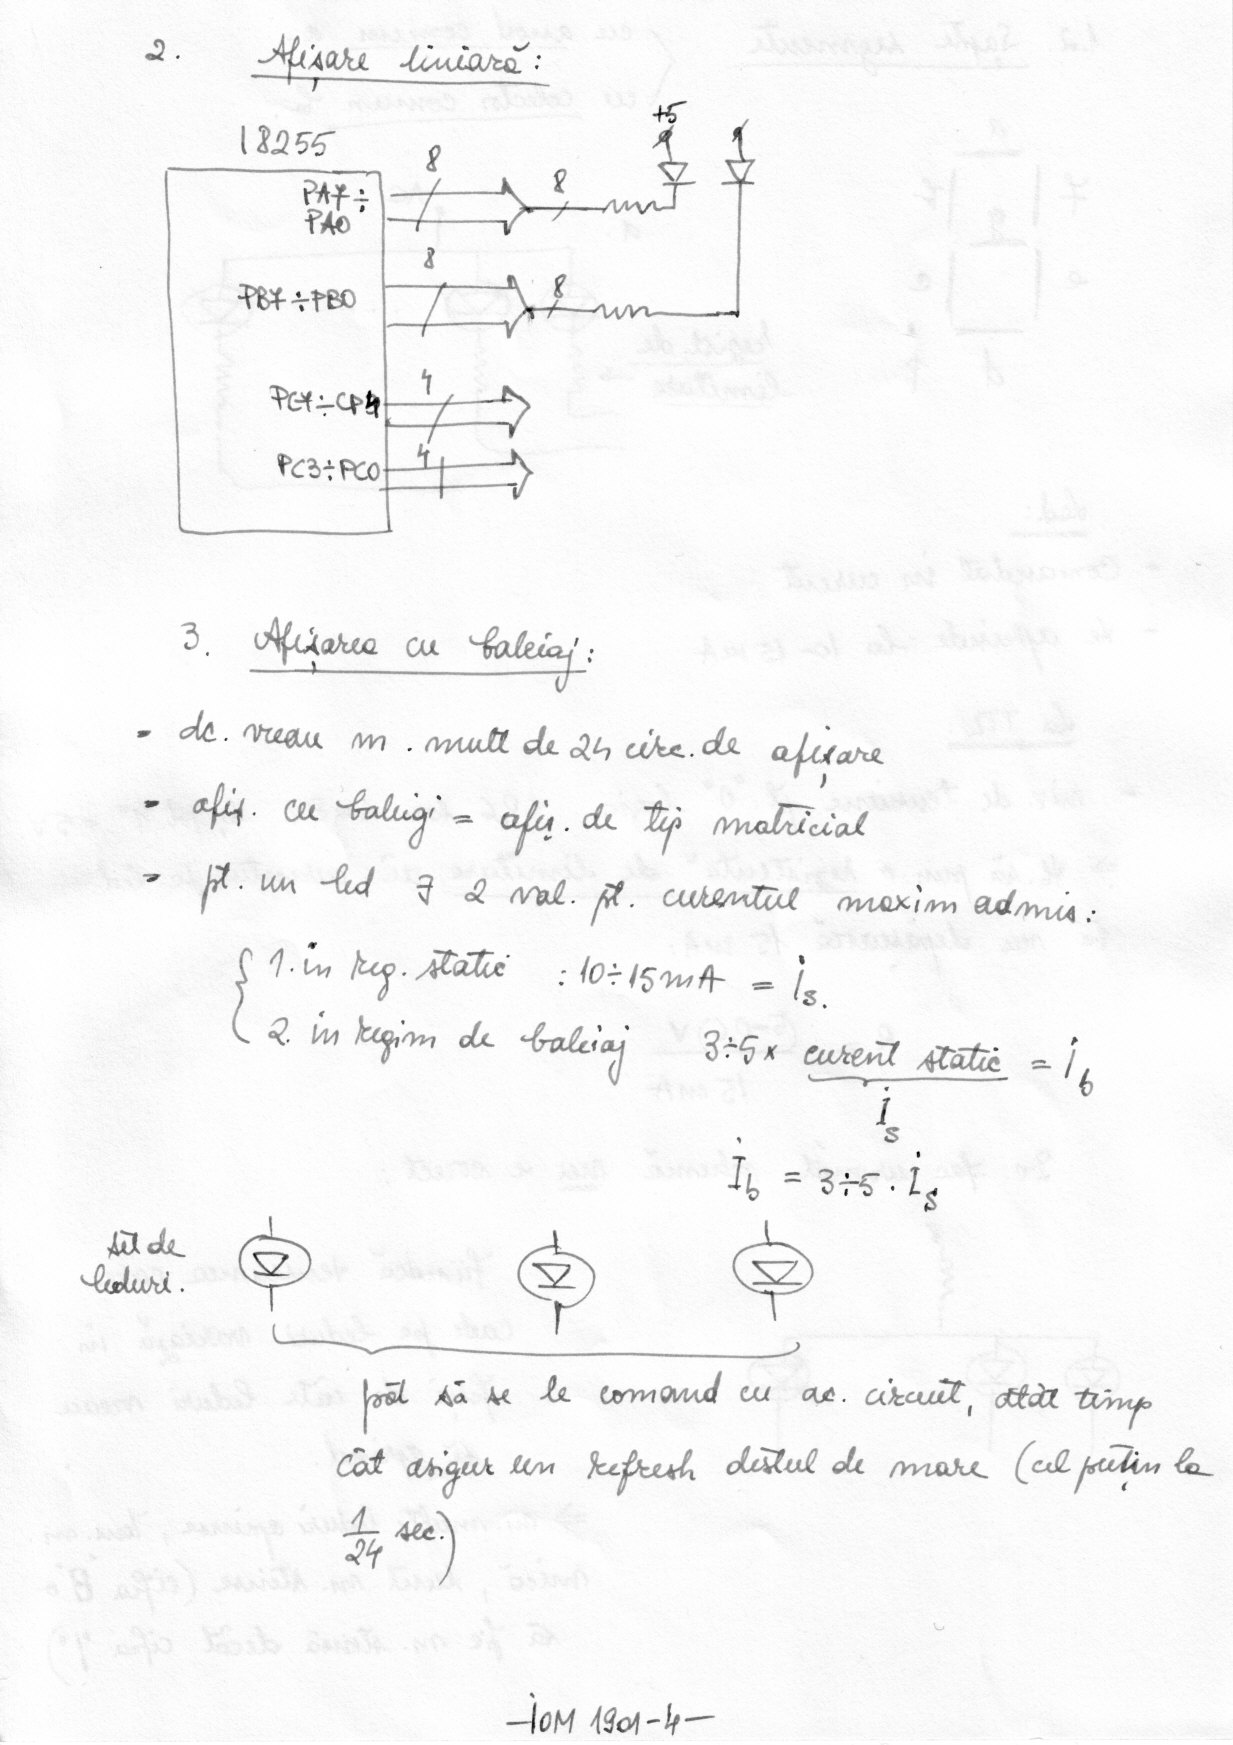 2. Afișare liniară:
I8255
+5
PA7÷
PA0
8
8
PB7÷PB0
8
8
PC7÷CP4
4
PC3÷PC0
4
3. Afișarea cu baleiaj:
- dc. vreau m. mult de 24 circ. de afișare
- afiș. cu baleigi = afiș. de tip matricial
- pt. un led ∃ 2 val. pt. curentul maxim admis:
{ 1. in reg. static : 10÷15mA = Is.
2. in regim de baleiaj 3÷5 × curent static = Ib
Is
Ib = 3÷5 · Is
set de
leduri.
pot să se le comand cu ac. circuit, atât timp
cât asigur un refresh destul de mare (cel puțin la
1/24 sec.)
-IOM 1901-4-